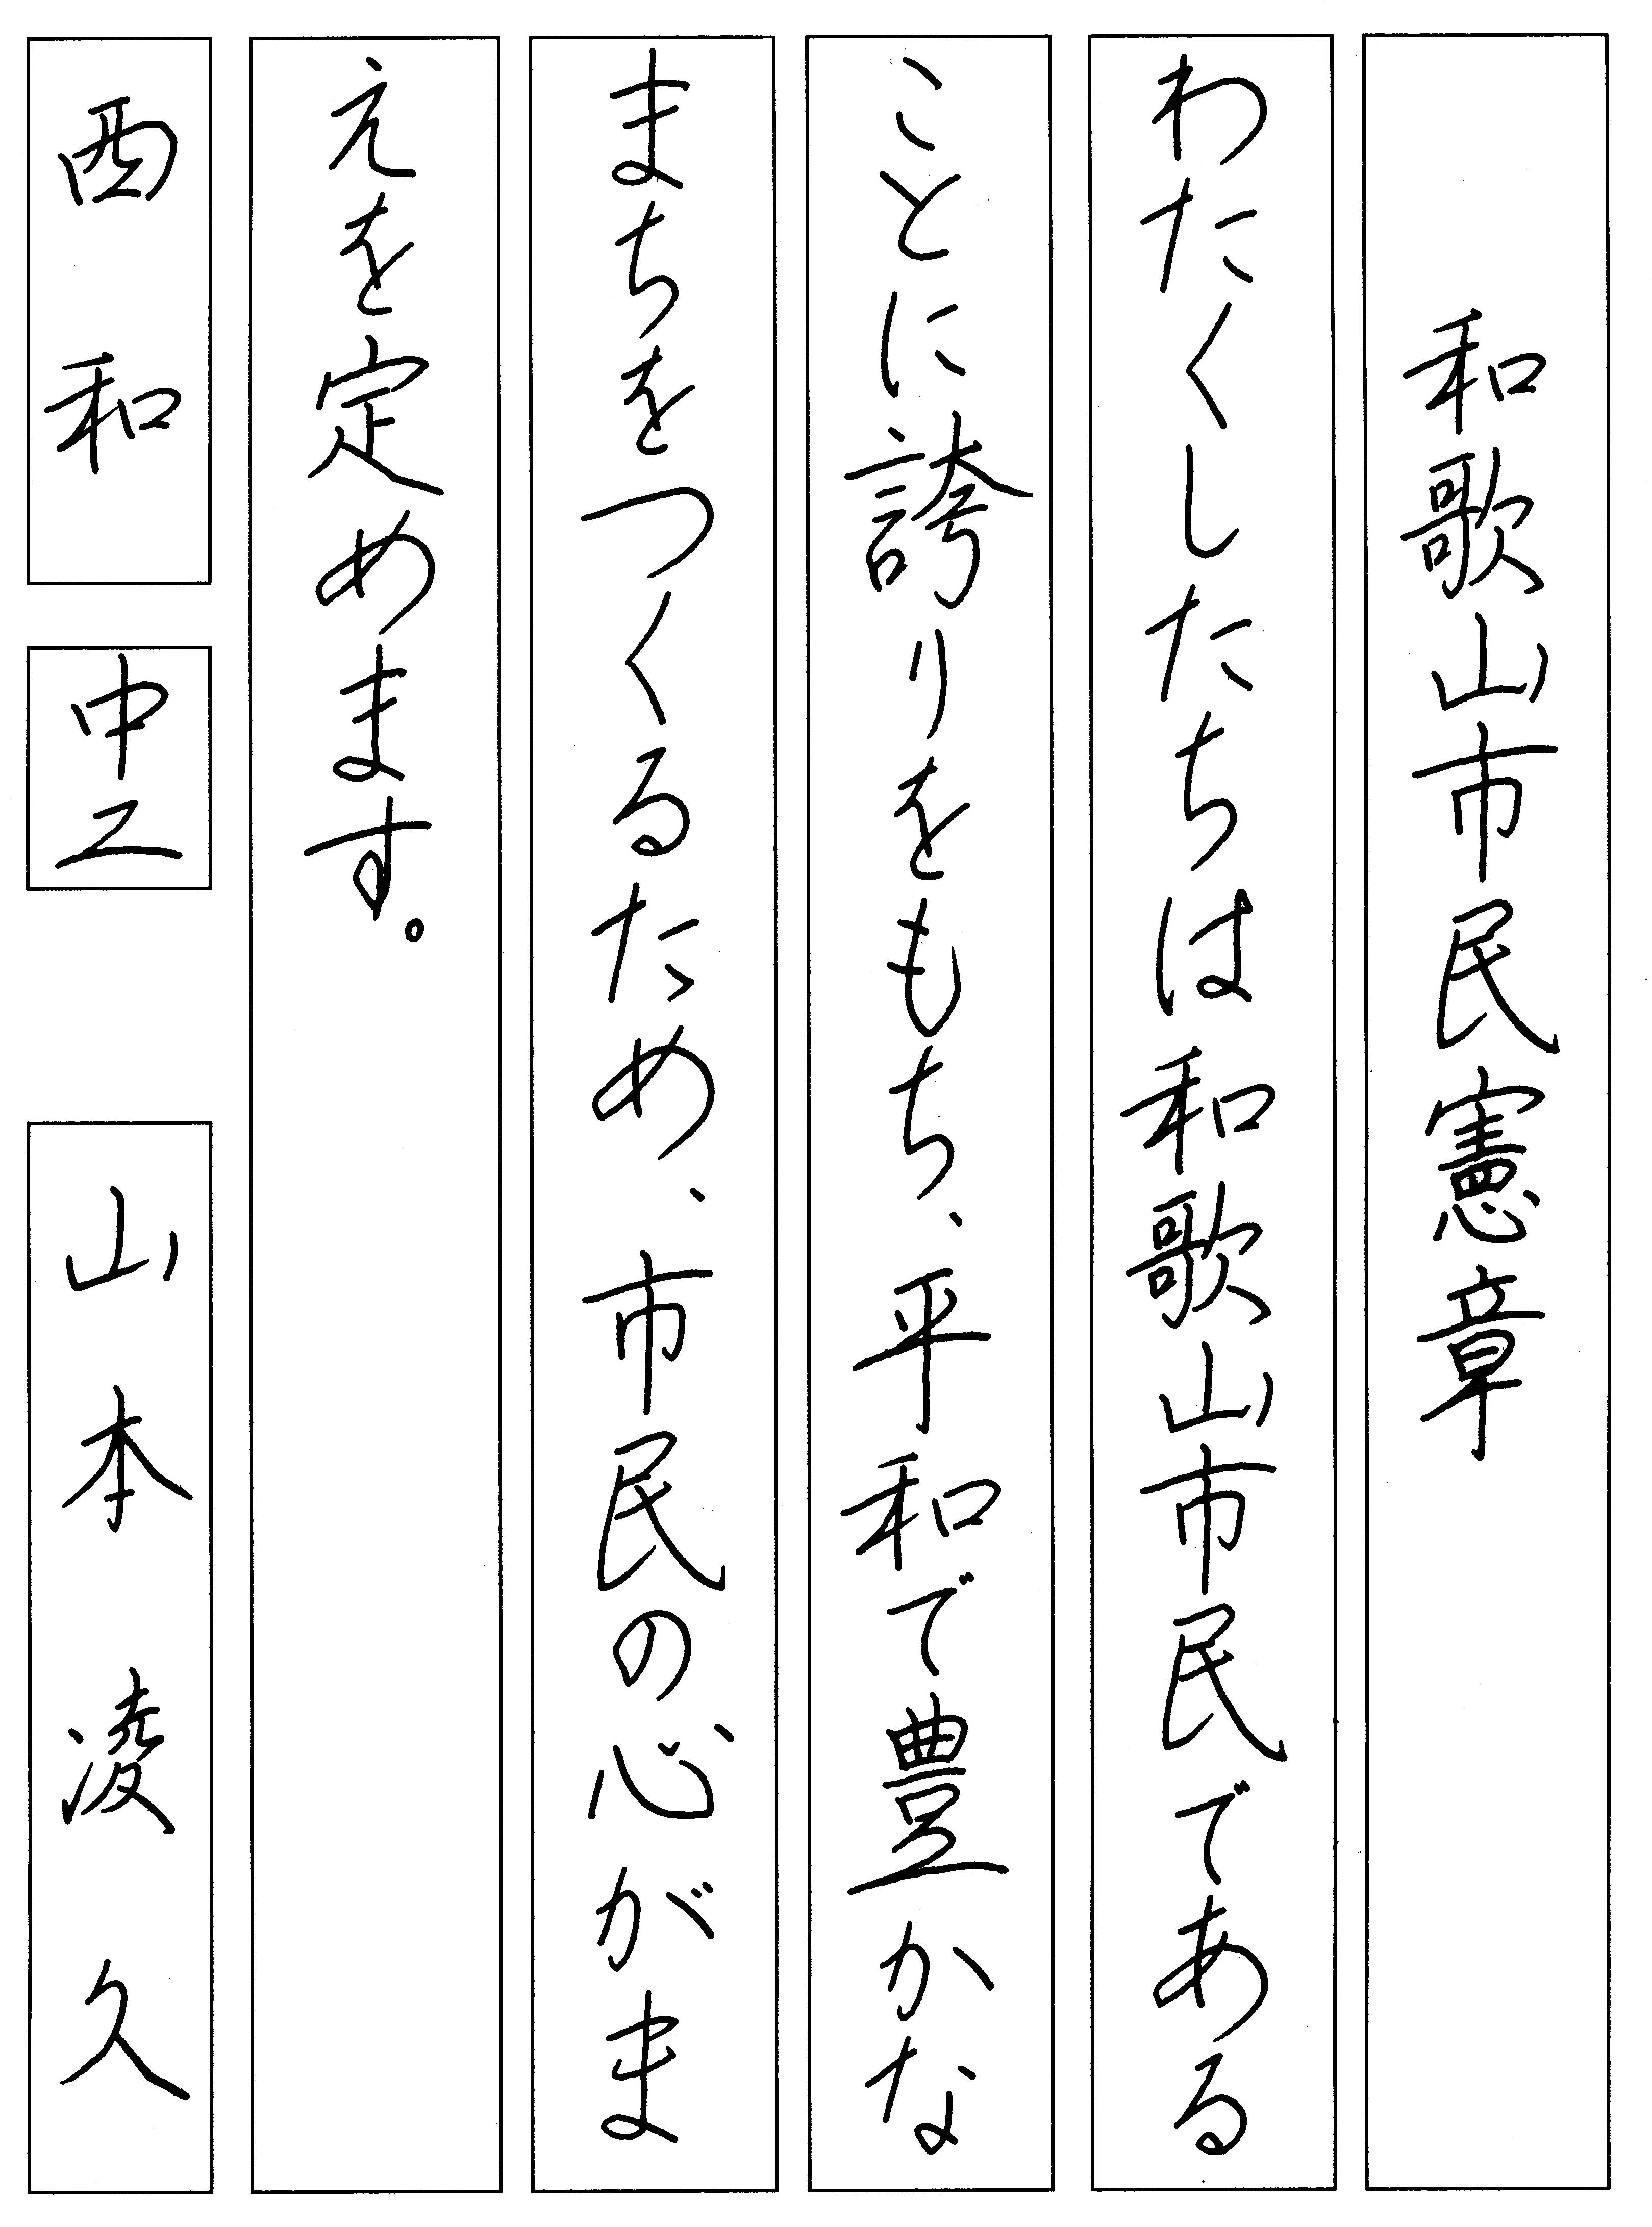 和歌山市民憲章
わたくしたちは和歌山市民である
ことに誇りをもち、平和で豊かな
まちをつくるため、市民の心がま
えを定めます。
西和
中二
山本凌久